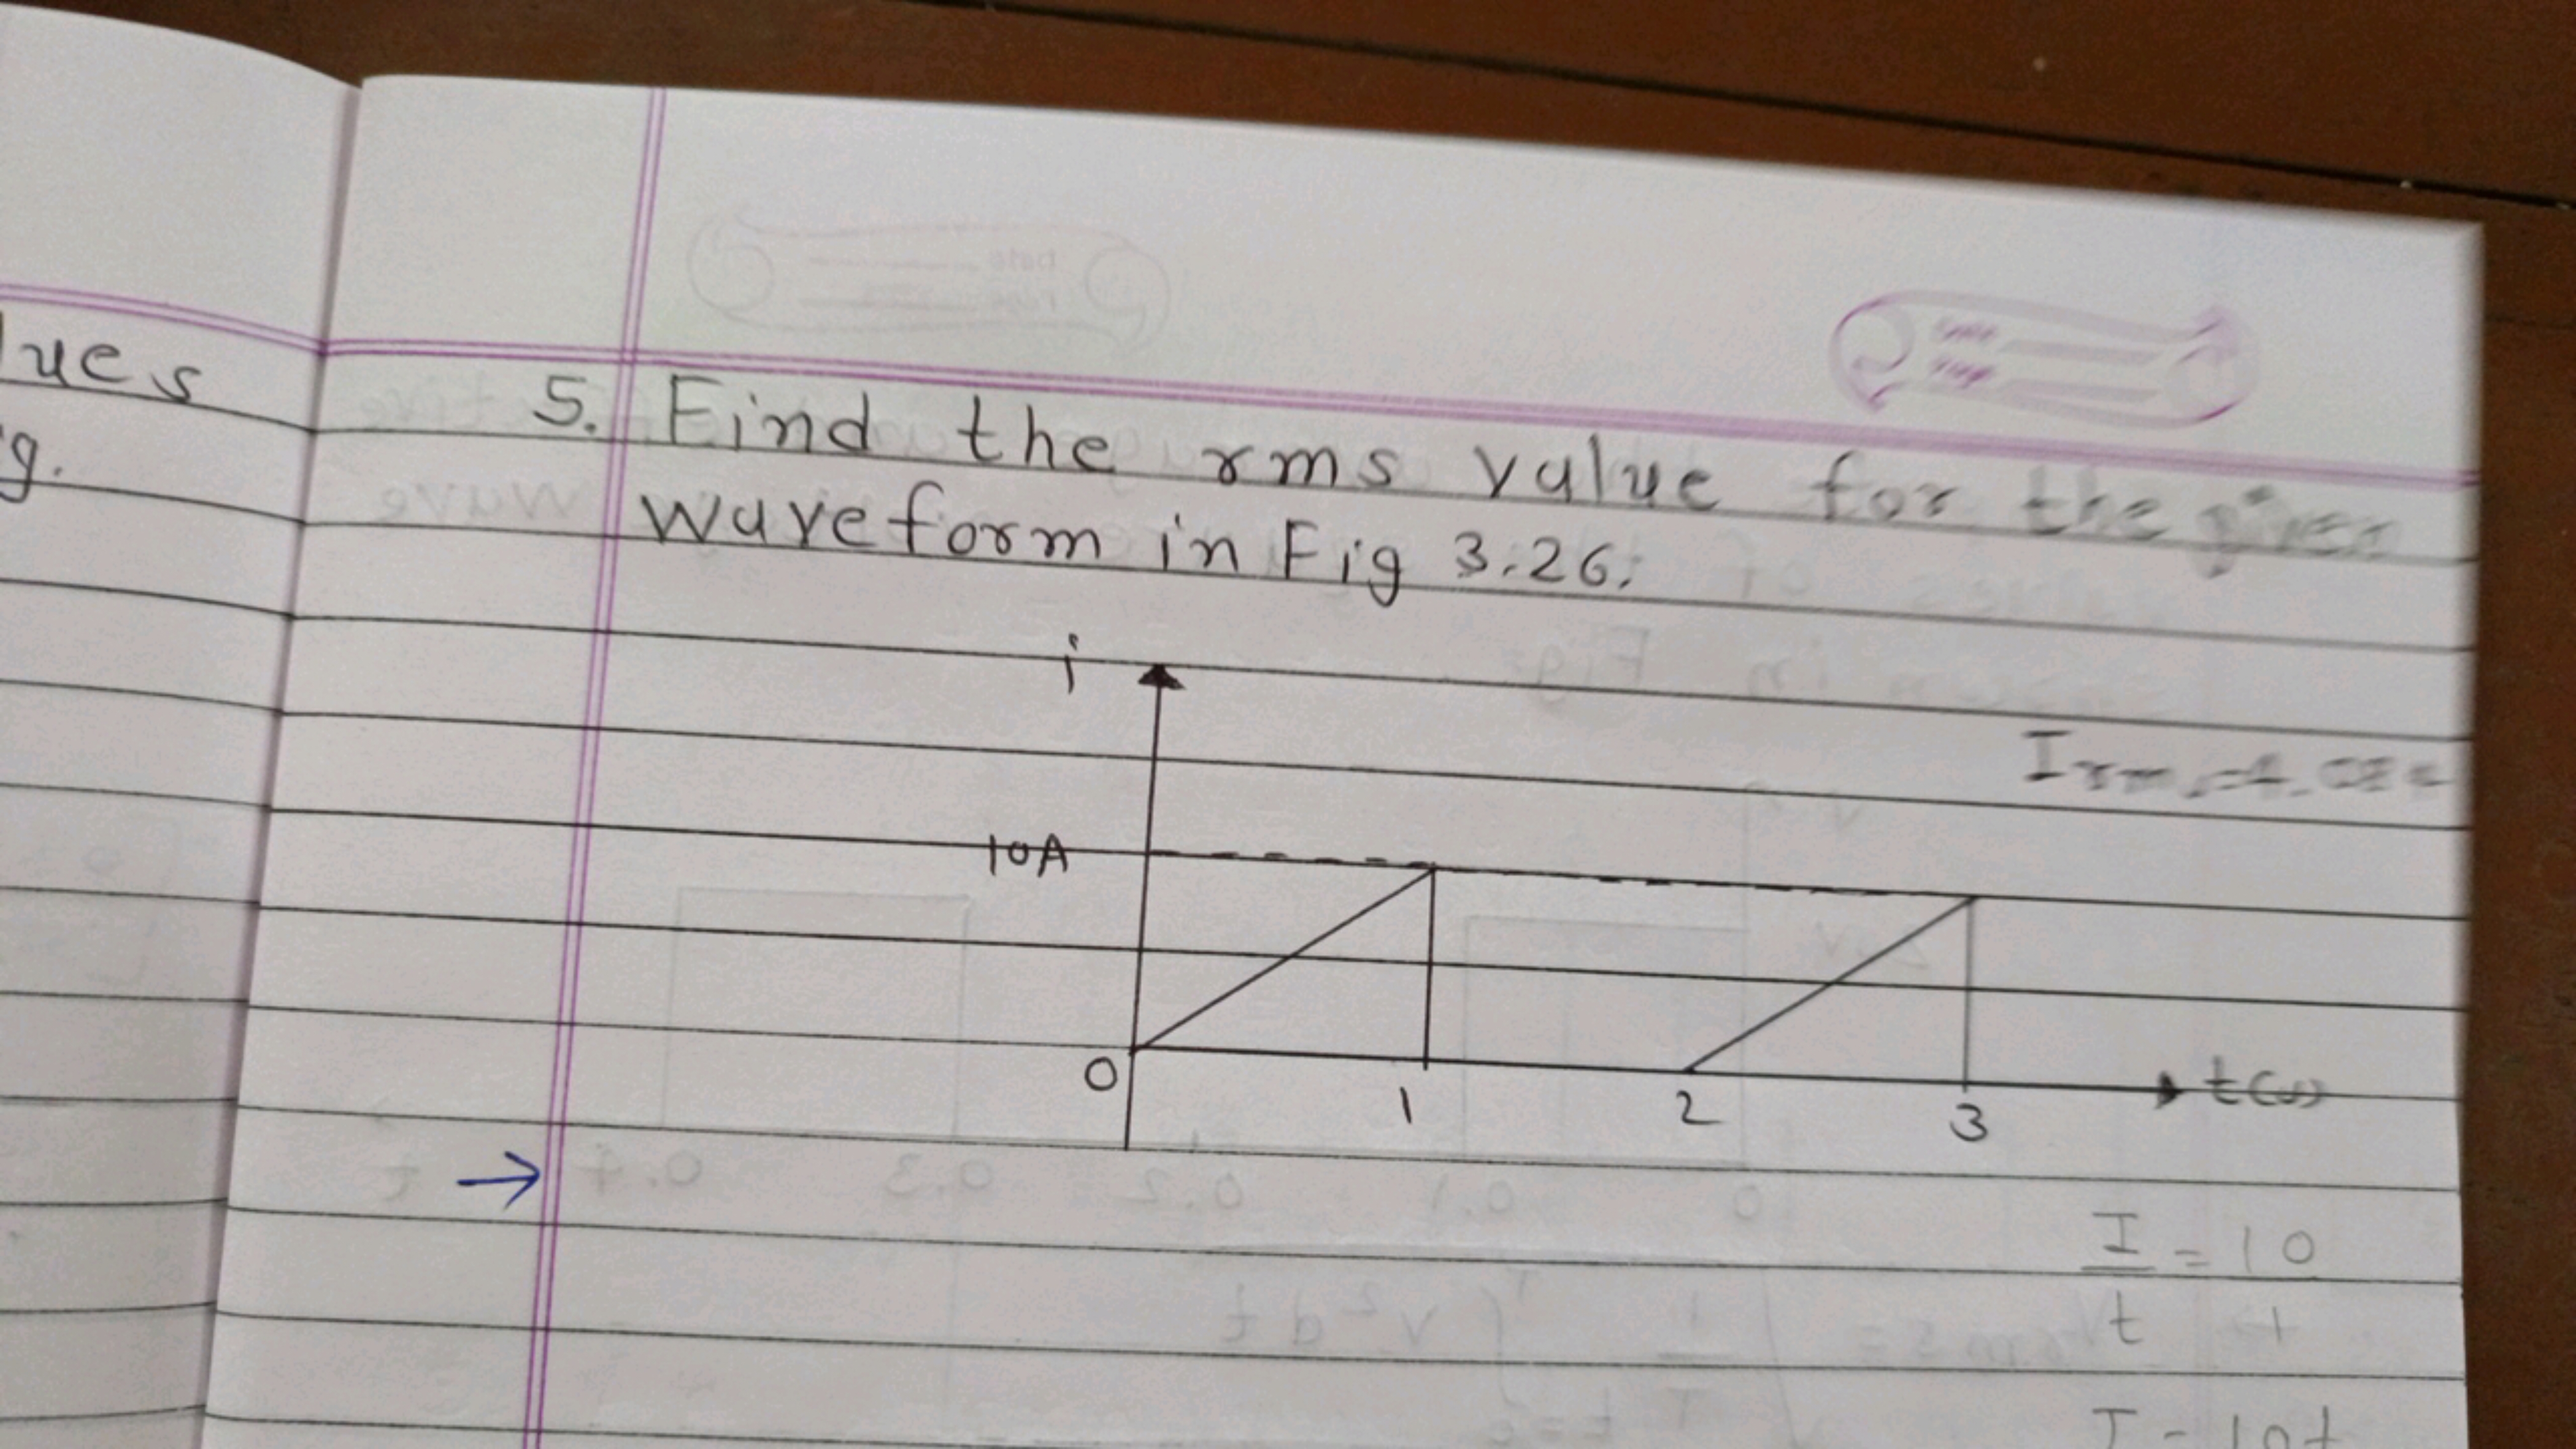 lues
g.
5. Find the rms value for the given
waveform in Fig 3.26.
i
10A
0
1
2
3
t(s)
I = 10
t 1
I = 10t